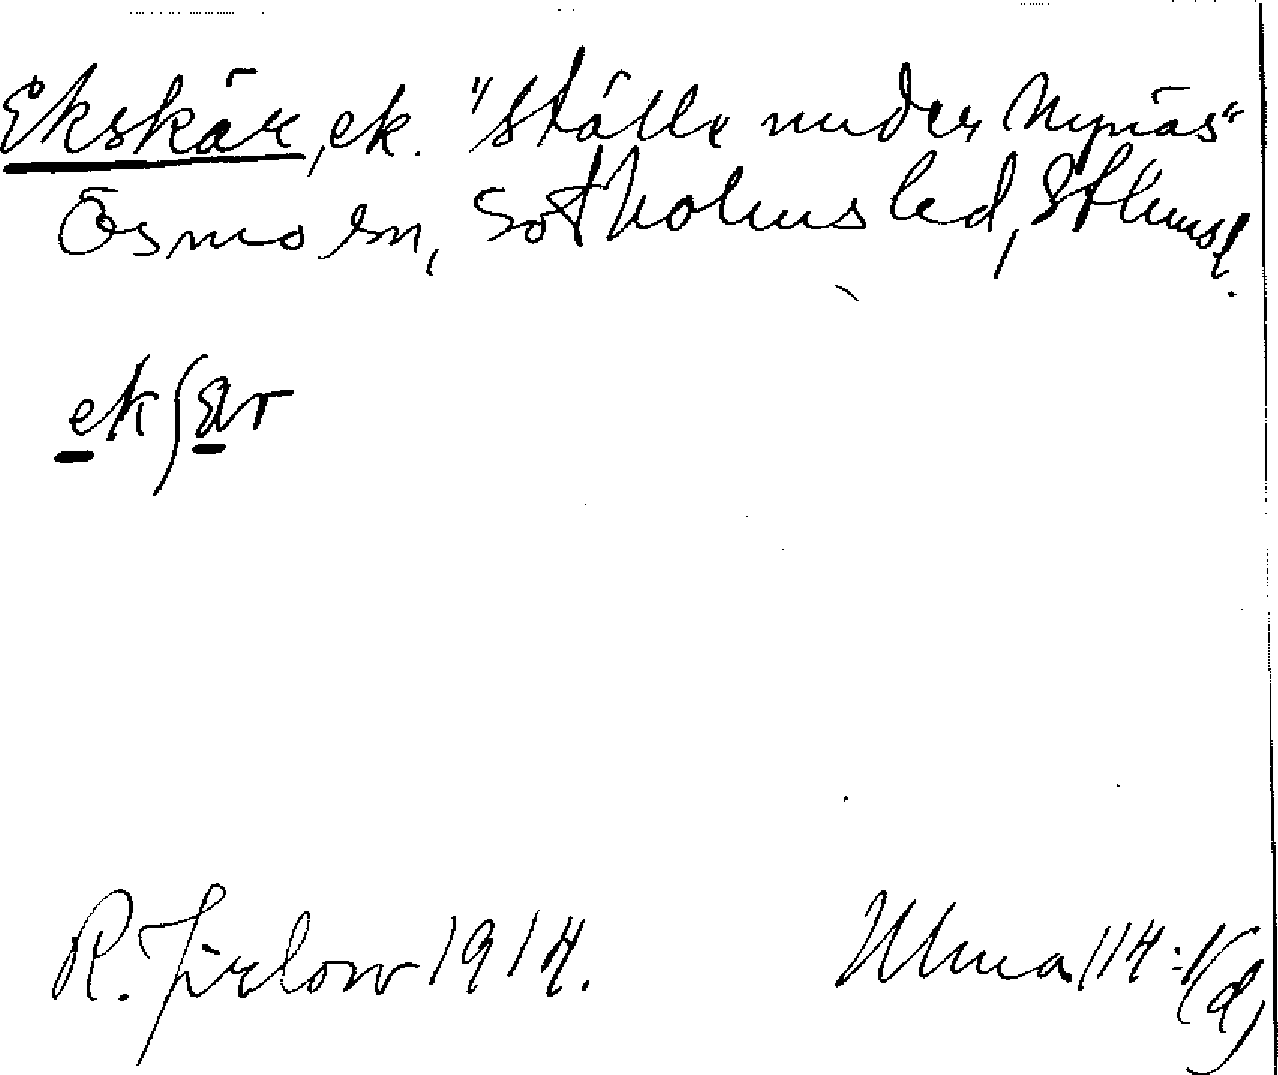 Ekskär, ek. "ställe under Nynäs"
Ösmo sn, Sotholms hd, Sthlms l.
ekʃær
R. Jirlow 1914.
Ulma 114:1(d)